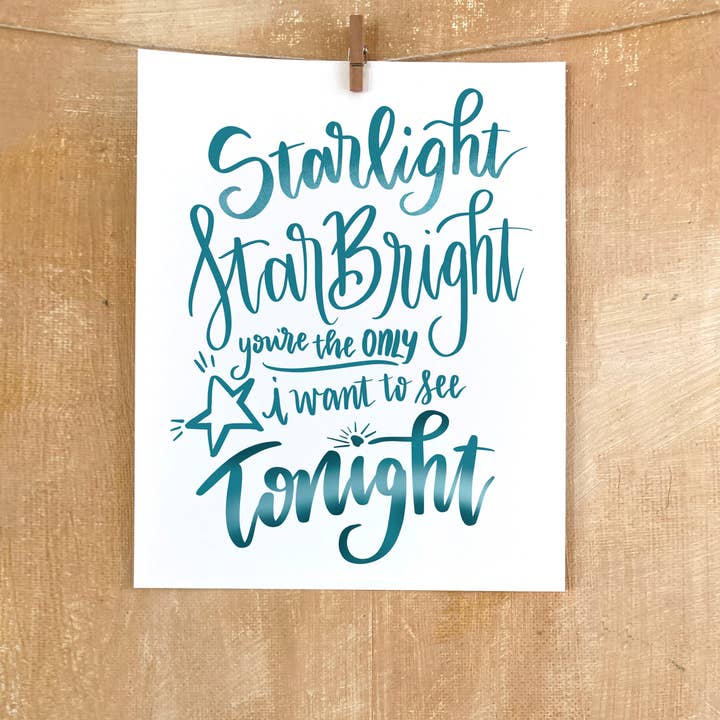 Starlight
StarBright
you're the ONLY
i want to see
Tonight